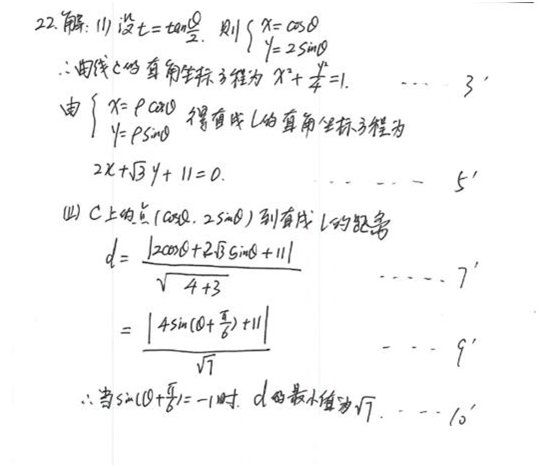 22.解: (1) 设t=tanθ/2. 则{x=cosθ y=2sinθ
∴曲线C的直角坐标方程为 x²+y²/4=1. ···· 3'
由{x=ρcosθ y=ρsinθ 得直线l的直角坐标方程为
2x+√3y+11=0. ······ 5'
(II) C上的点(cosθ, 2sinθ)到直线l的距离
d=|2cosθ+2√3sinθ+11|/√4+3 ····· 7'
=|4sin(θ+π/6)+11|/√7 ···· 9'
∴当sin(θ+π/6)=-1时. d的最小值为√7. ···· 10'